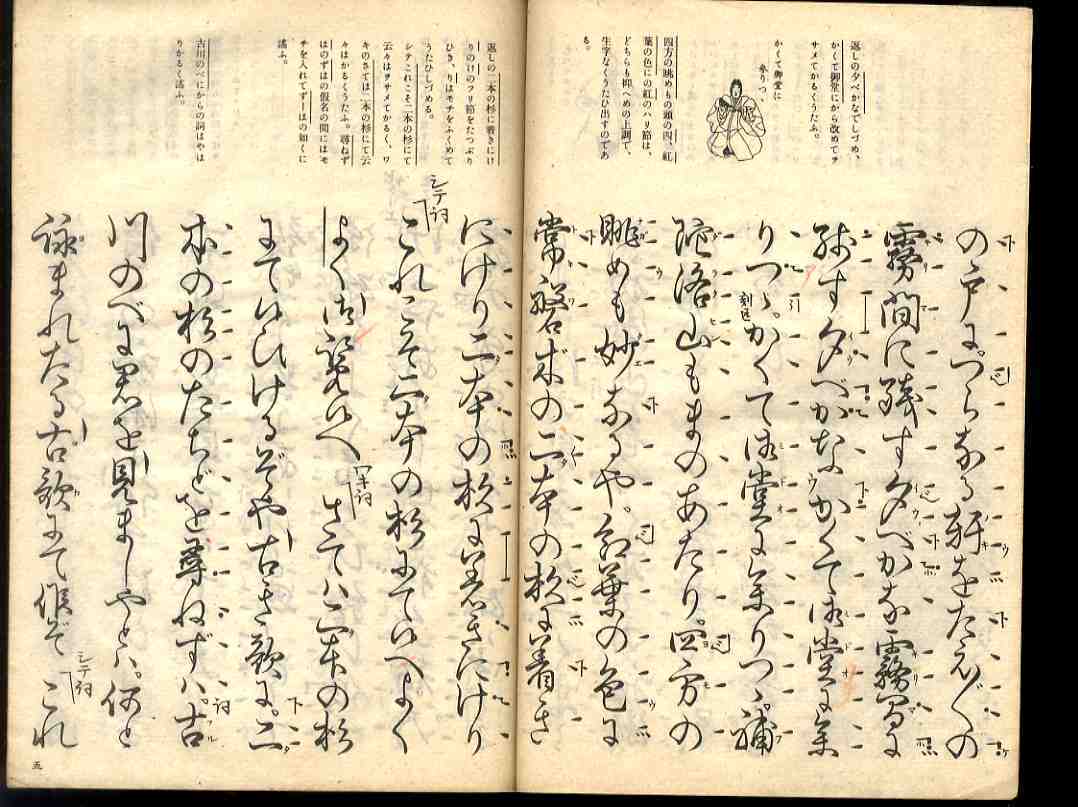 返しの夕べかなでしづめ、
かくて御堂にから改めてヲ
サメてかるくうたふ。
かくて御堂に
参りつゝ
四方の眺めもの頭の四、紅
葉の色にの紅のハリ節は、
どちらも抑へめの上調で、
生字なくうたひ出すのであ
る。
の戸につらなる軒をたえ〴〵の
霧間に残す夕べかな霧間に
残す夕べかなかくて御堂に参
りつゝ。かくて御堂に参りつゝ、補
陀洛山もまのあたり。四方の
眺めも妙なるや。紅葉の色に
常磐木の二本の杉に着き
にけり二本の杉に着きにけり
返しの二本の杉に着きにけ
りのけのフリ節をたつぷり
ひき、りはモチをふくめて
うたひしづめる。
シテこれこそ二本の杉にて
云々はヲサメてかるく、ワ
キのさては二本の杉にて云
々はかるくうたふ。尋ねず
はのずはの假名の間にはモ
チを入れてずーはの如くに
謡ふ。
古川のべにからの詞はやは
りかるく謡ふ。
シテ詞
これこそ二本の杉にて候へよく
よく御覧候へ
ワキ詞
さては二本の杉
にて候ひけるぞや古き歌に。二
本の杉のたちどを尋ねずは。古
川のべに君を見ましやとは。何と
詠まれたる古歌にて候ぞ
シテ詞
これ
五